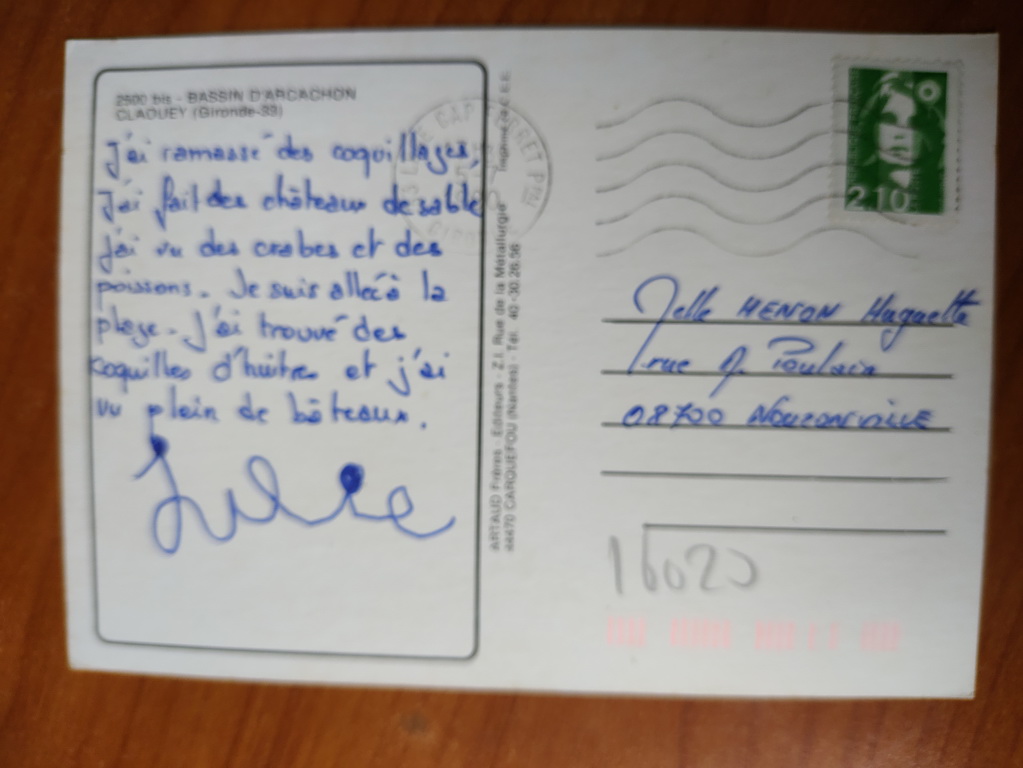 2500 bis - BASSIN D'ARCACHON
CLAOUEY (Gironde-33)
J'ai ramassé des coquillages,
J'ai fait des châteaux de sable
j'ai vu des crabes et des
poissons. Je suis allée à la
plage. J'ai trouvé des
coquilles d'huitres et j'ai
vu plein de bâteaux.
Julie
ARTAUD Frères - Editeurs - Z.I. Rue de la Métallurgie
44470 CARQUEFOU (Nantes) - Tél. 40.30.26.56
CAP FERRET
2,10
Melle HENON Huguette
rue A. Poulain
08700 NOUZONVILLE